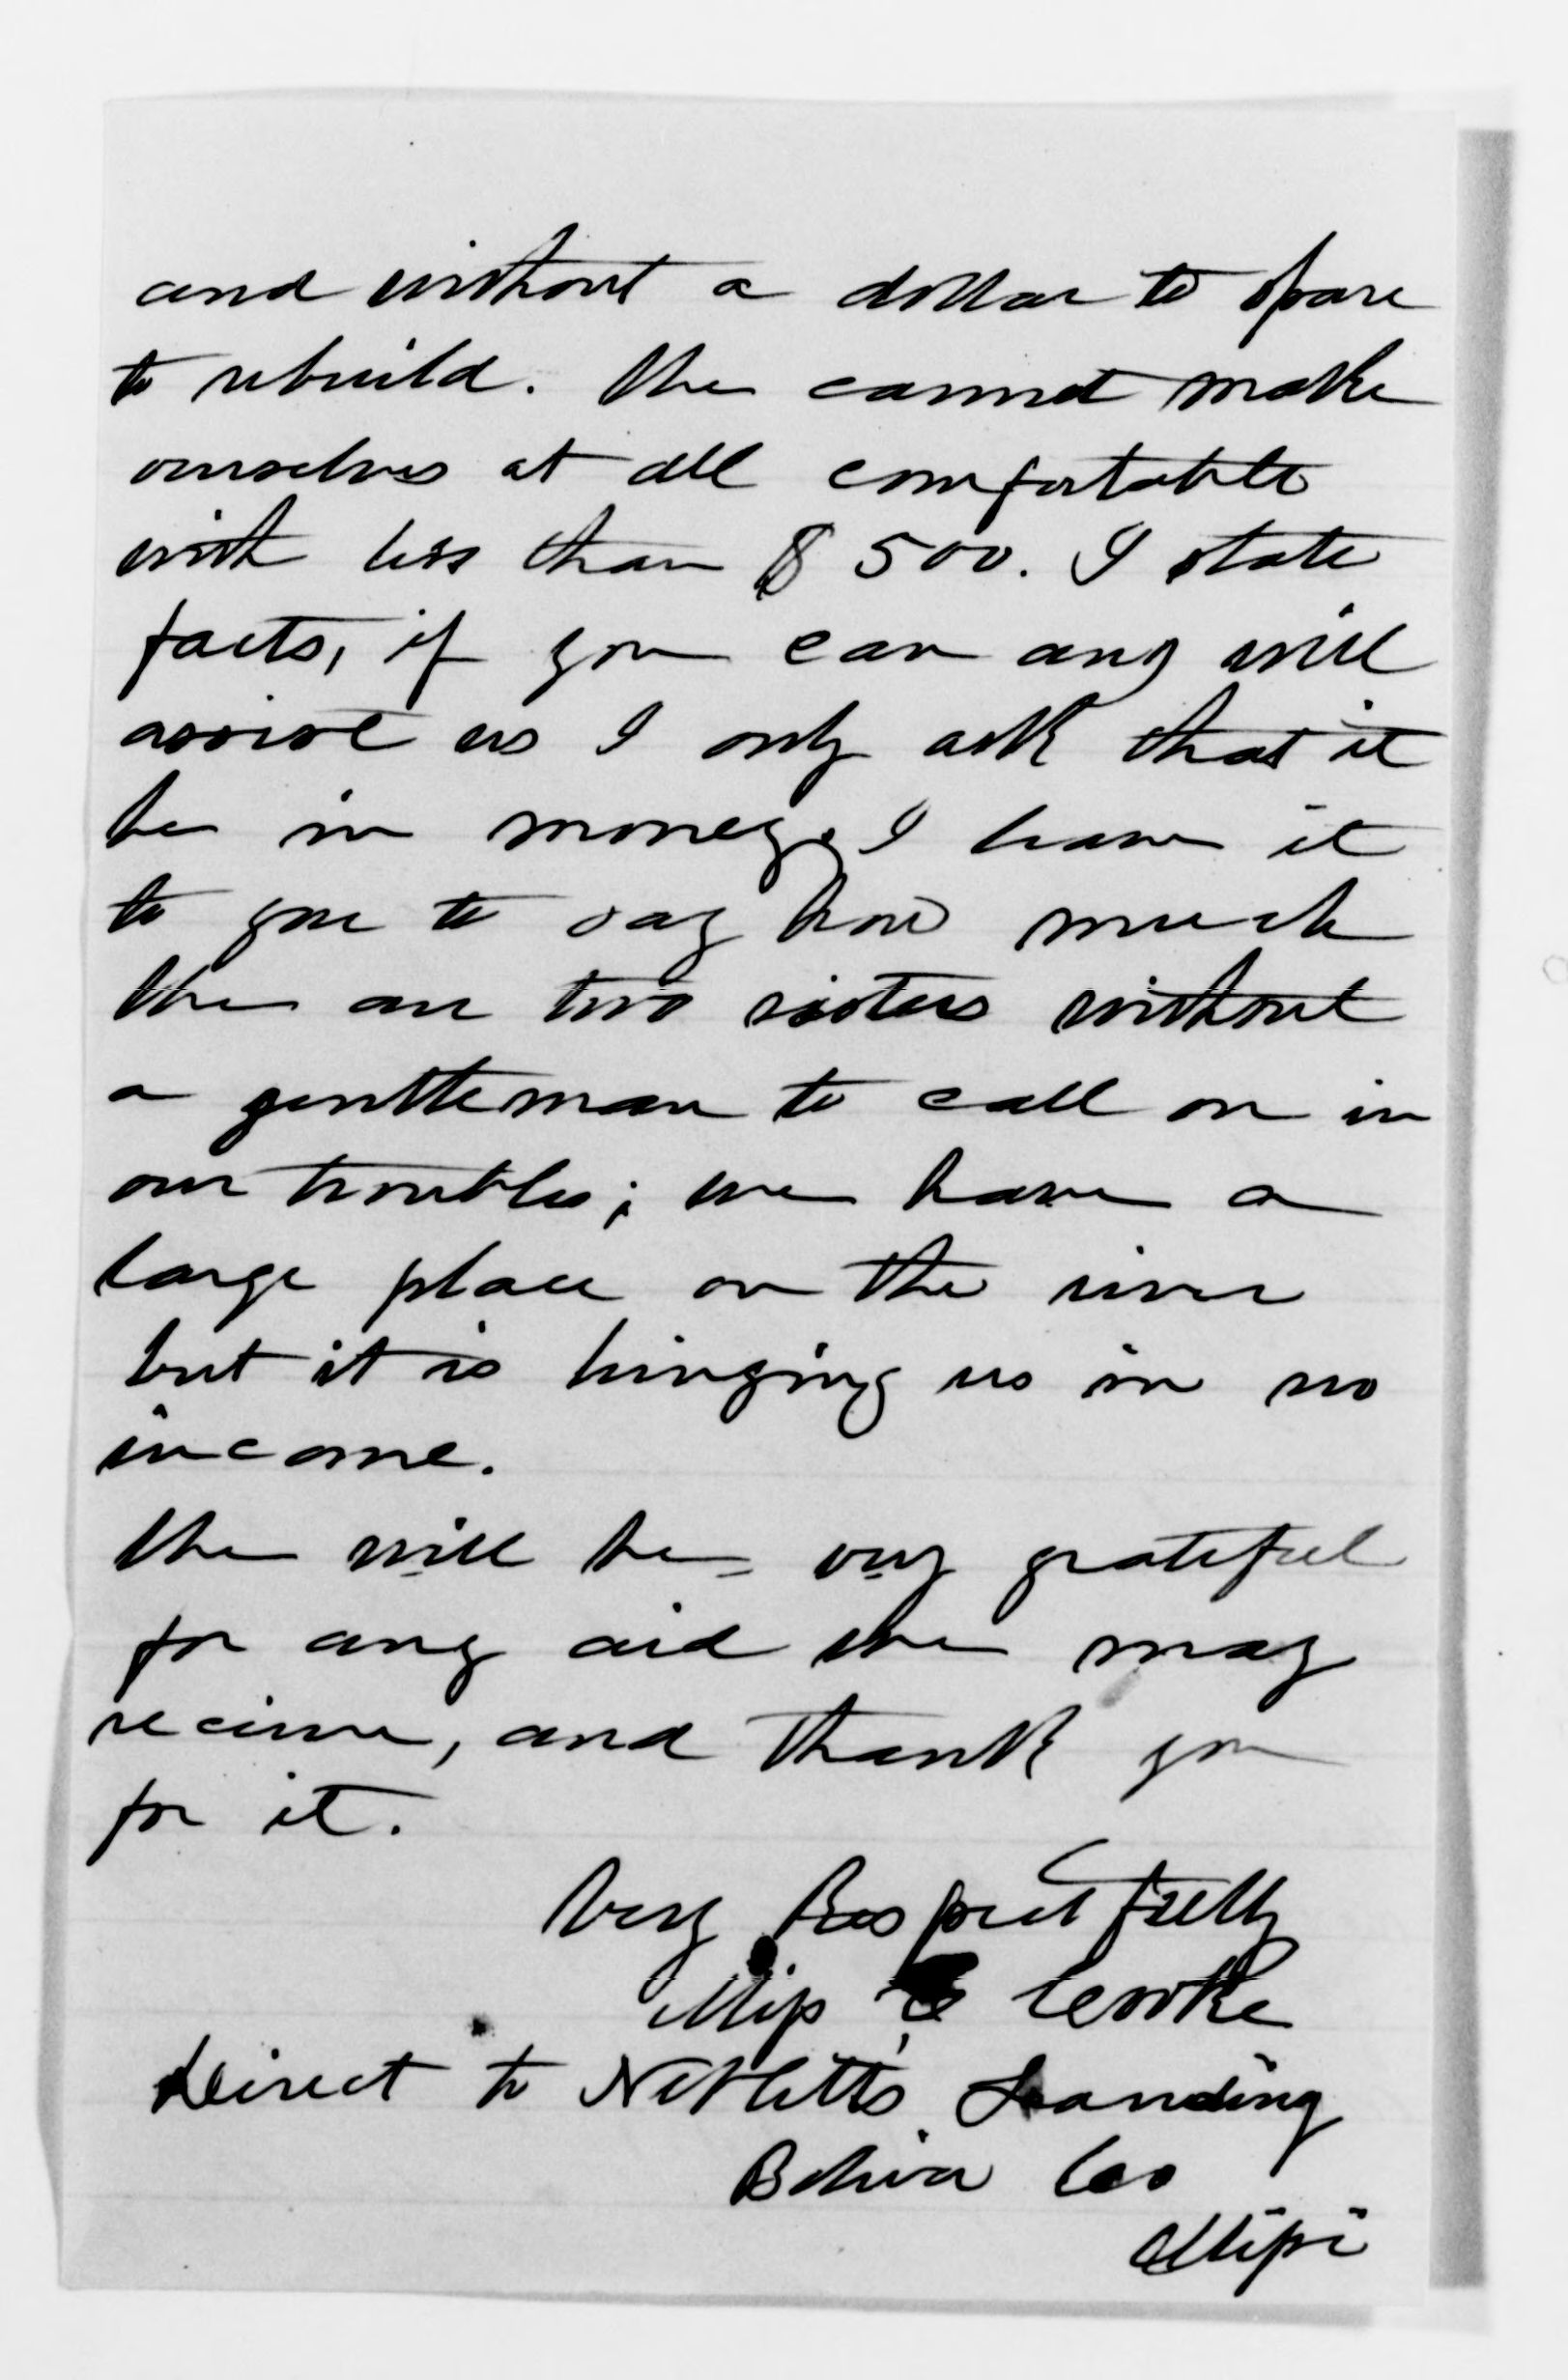 and without a dollar to spare
to rebuild. We cannot make
ourselves at all comfortable
with less than $500. I state
facts, if you can and will
assist us I only ask that it
be in money, I leave it
to you to say how much
We are two sisters without
a gentleman to call on in
our troubles; we have a
large place on the river
but it is bringing us in no
income.
We will be very grateful
for any aid we may
receive, and thank you
for it.
Very Respectfully
Miss
Direct to Niblitts Landing
Bolivar Co
Missi